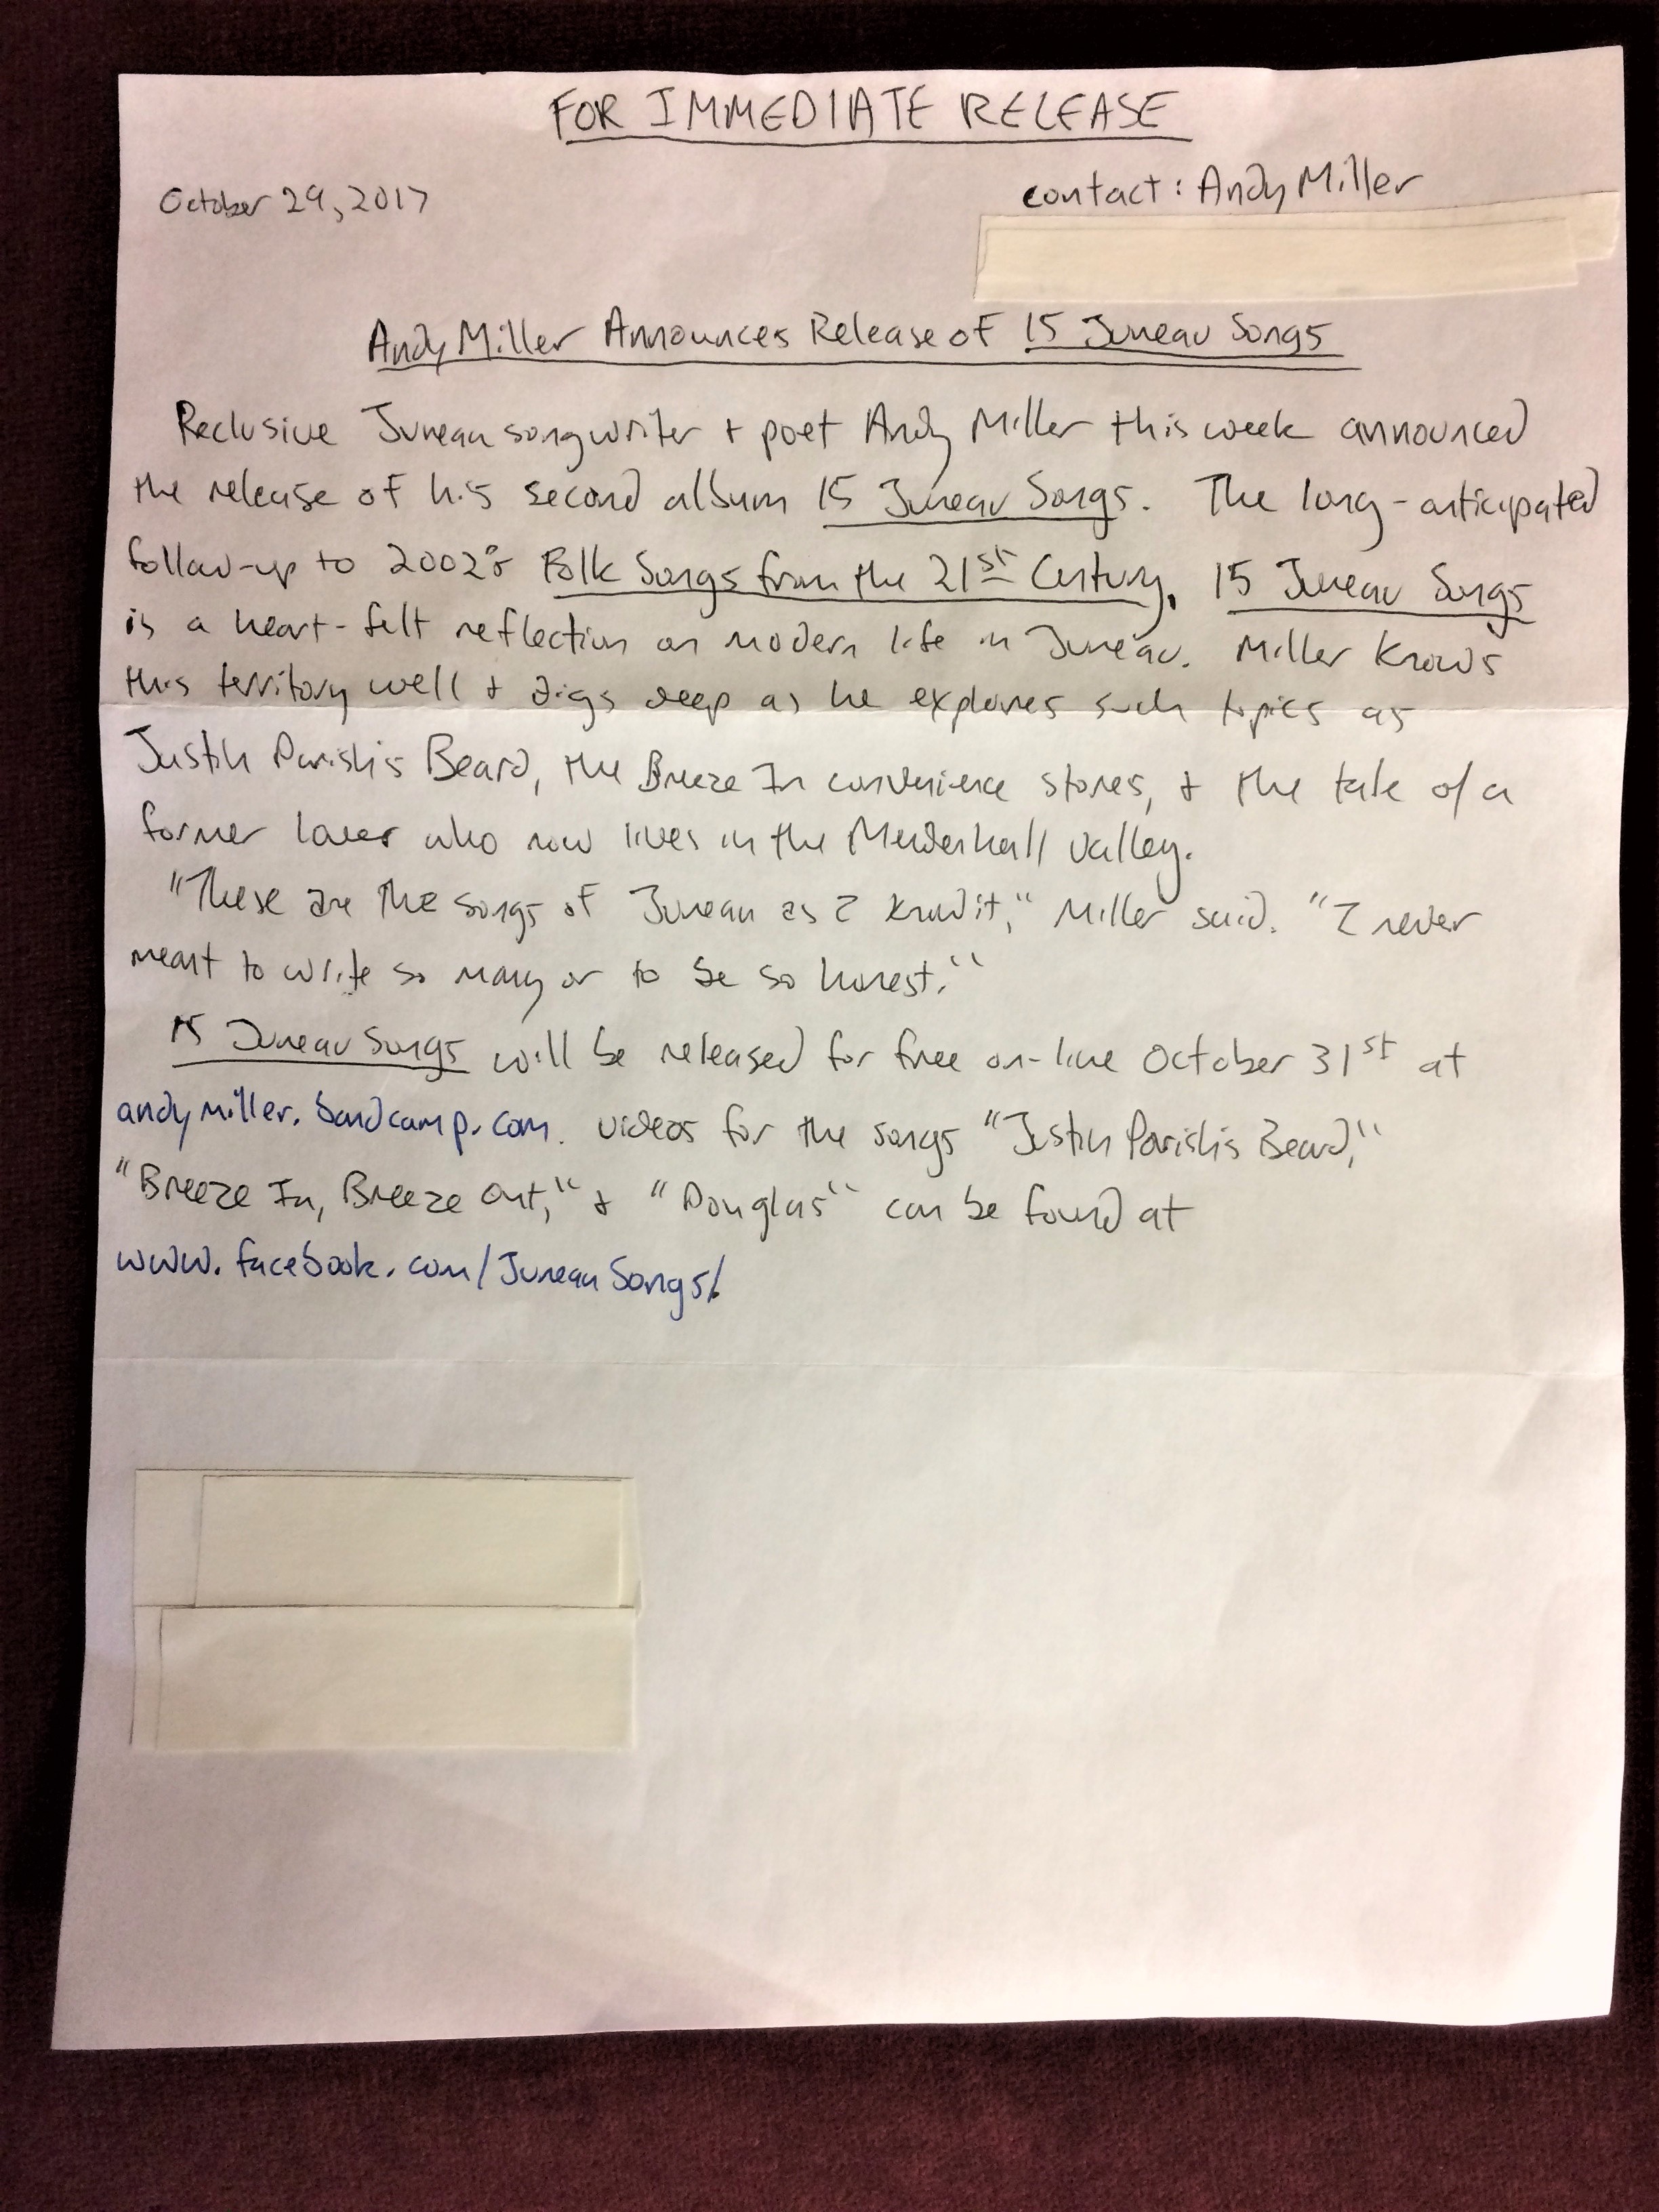 FOR IMMEDIATE RELEASE
October 29, 2017
contact: Andy Miller
Andy Miller Announces Release of 15 Juneau Songs
Reclusive Juneau songwriter + poet Andy Miller this week announced
the release of his second album 15 Juneau Songs. The long-anticipated
follow-up to 2002's Folk Songs from the 21st Century, 15 Juneau Songs
is a heart-felt reflection on modern life in Juneau. Miller knows
this territory well + digs deep as he explores such topics as
Justin Parish's Beard, the Breeze In convenience stores, + the tale of a
former lover who now lives in the Mendenhall Valley.
"These are the songs of Juneau as I know it," Miller said. "I never
meant to write so many or to be so honest."
15 Juneau Songs will be released for free on-line October 31st at
andymiller.bandcamp.com. Videos for the songs "Justin Parish's Beard,"
"Breeze In, Breeze Out," + "Douglas" can be found at
www.facebook.com/JuneauSongs/.